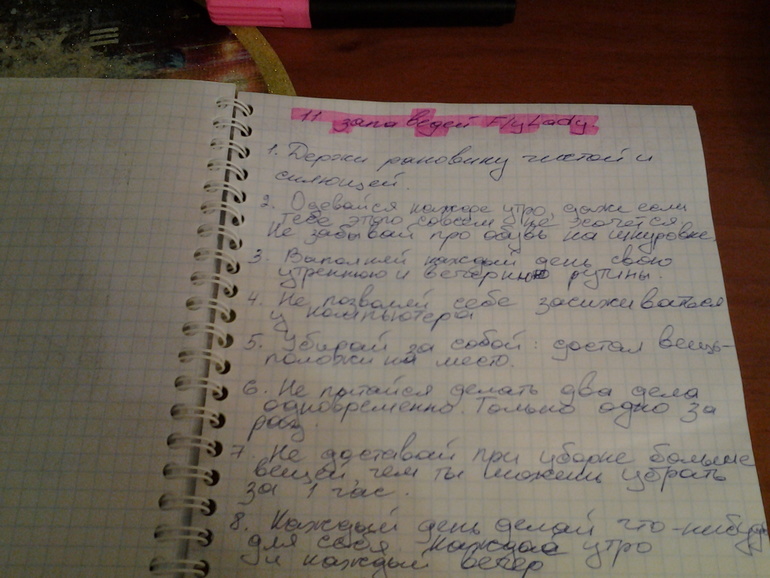 11 заповедей FlyLady.
1. Держи раковину чистой и
сияющей.
2. Одевайся каждое утро, даже если
тебе этого совсем не хочется.
Не забывай про обувь на шнуровке.
3. Выполняй каждый день свою
утреннюю и вечернюю рутины.
4. Не позволяй себе засиживаться
у компьютера
5. Убирай за собой: достал вещь-
положи на место.
6. Не пытайся делать два дела
одновременно. Только одно за
раз.
7. Не доставай при уборке больше
вещей, чем ты можешь убрать
за 1 час.
8. Каждый день делай что-нибудь
для себя каждое утро
и каждый вечер